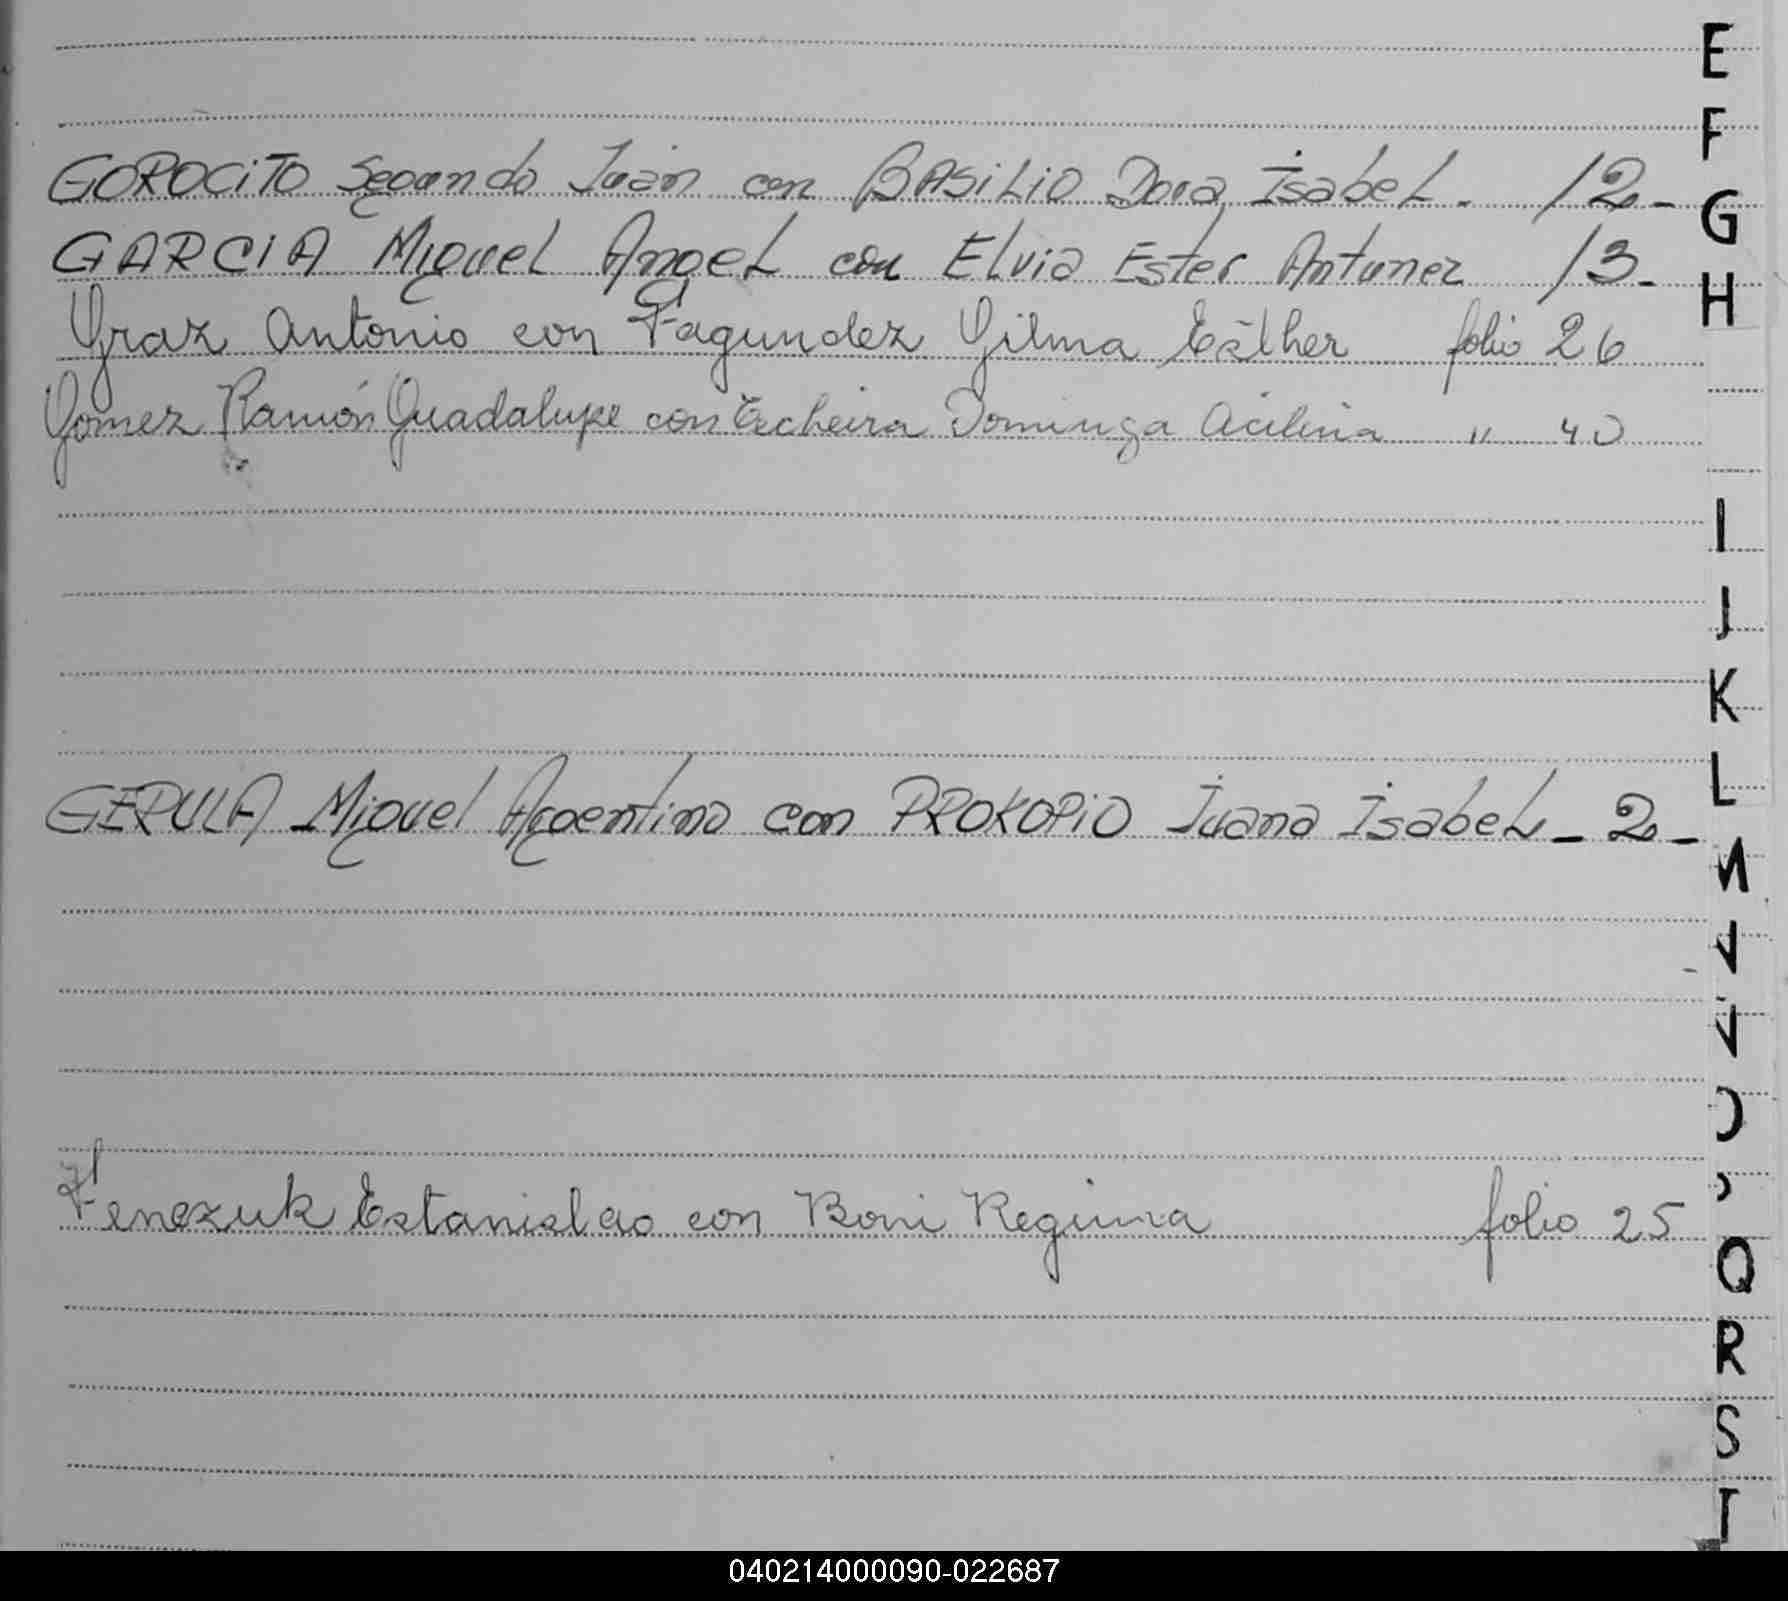 E
F
GOROCITO Segundo Juan con BASILIO Dora Isabel. 12-
G
GARCIA Miguel Angel con Elvia Ester Antunez 13-
H
Graz Antonio con Fagundez Gilma Esther folio 26
Gomez Ramón Guadalupe con Techeira Dominga Acilina " 40
I
J
K
L
GERULA Miguel Argentino con PROKOPIO Juana Isabel - 2 -
M
N
N
O
Fenczuk Estanislao con Boni Regina folio 25
Q
R
S
T
040214000090-022687